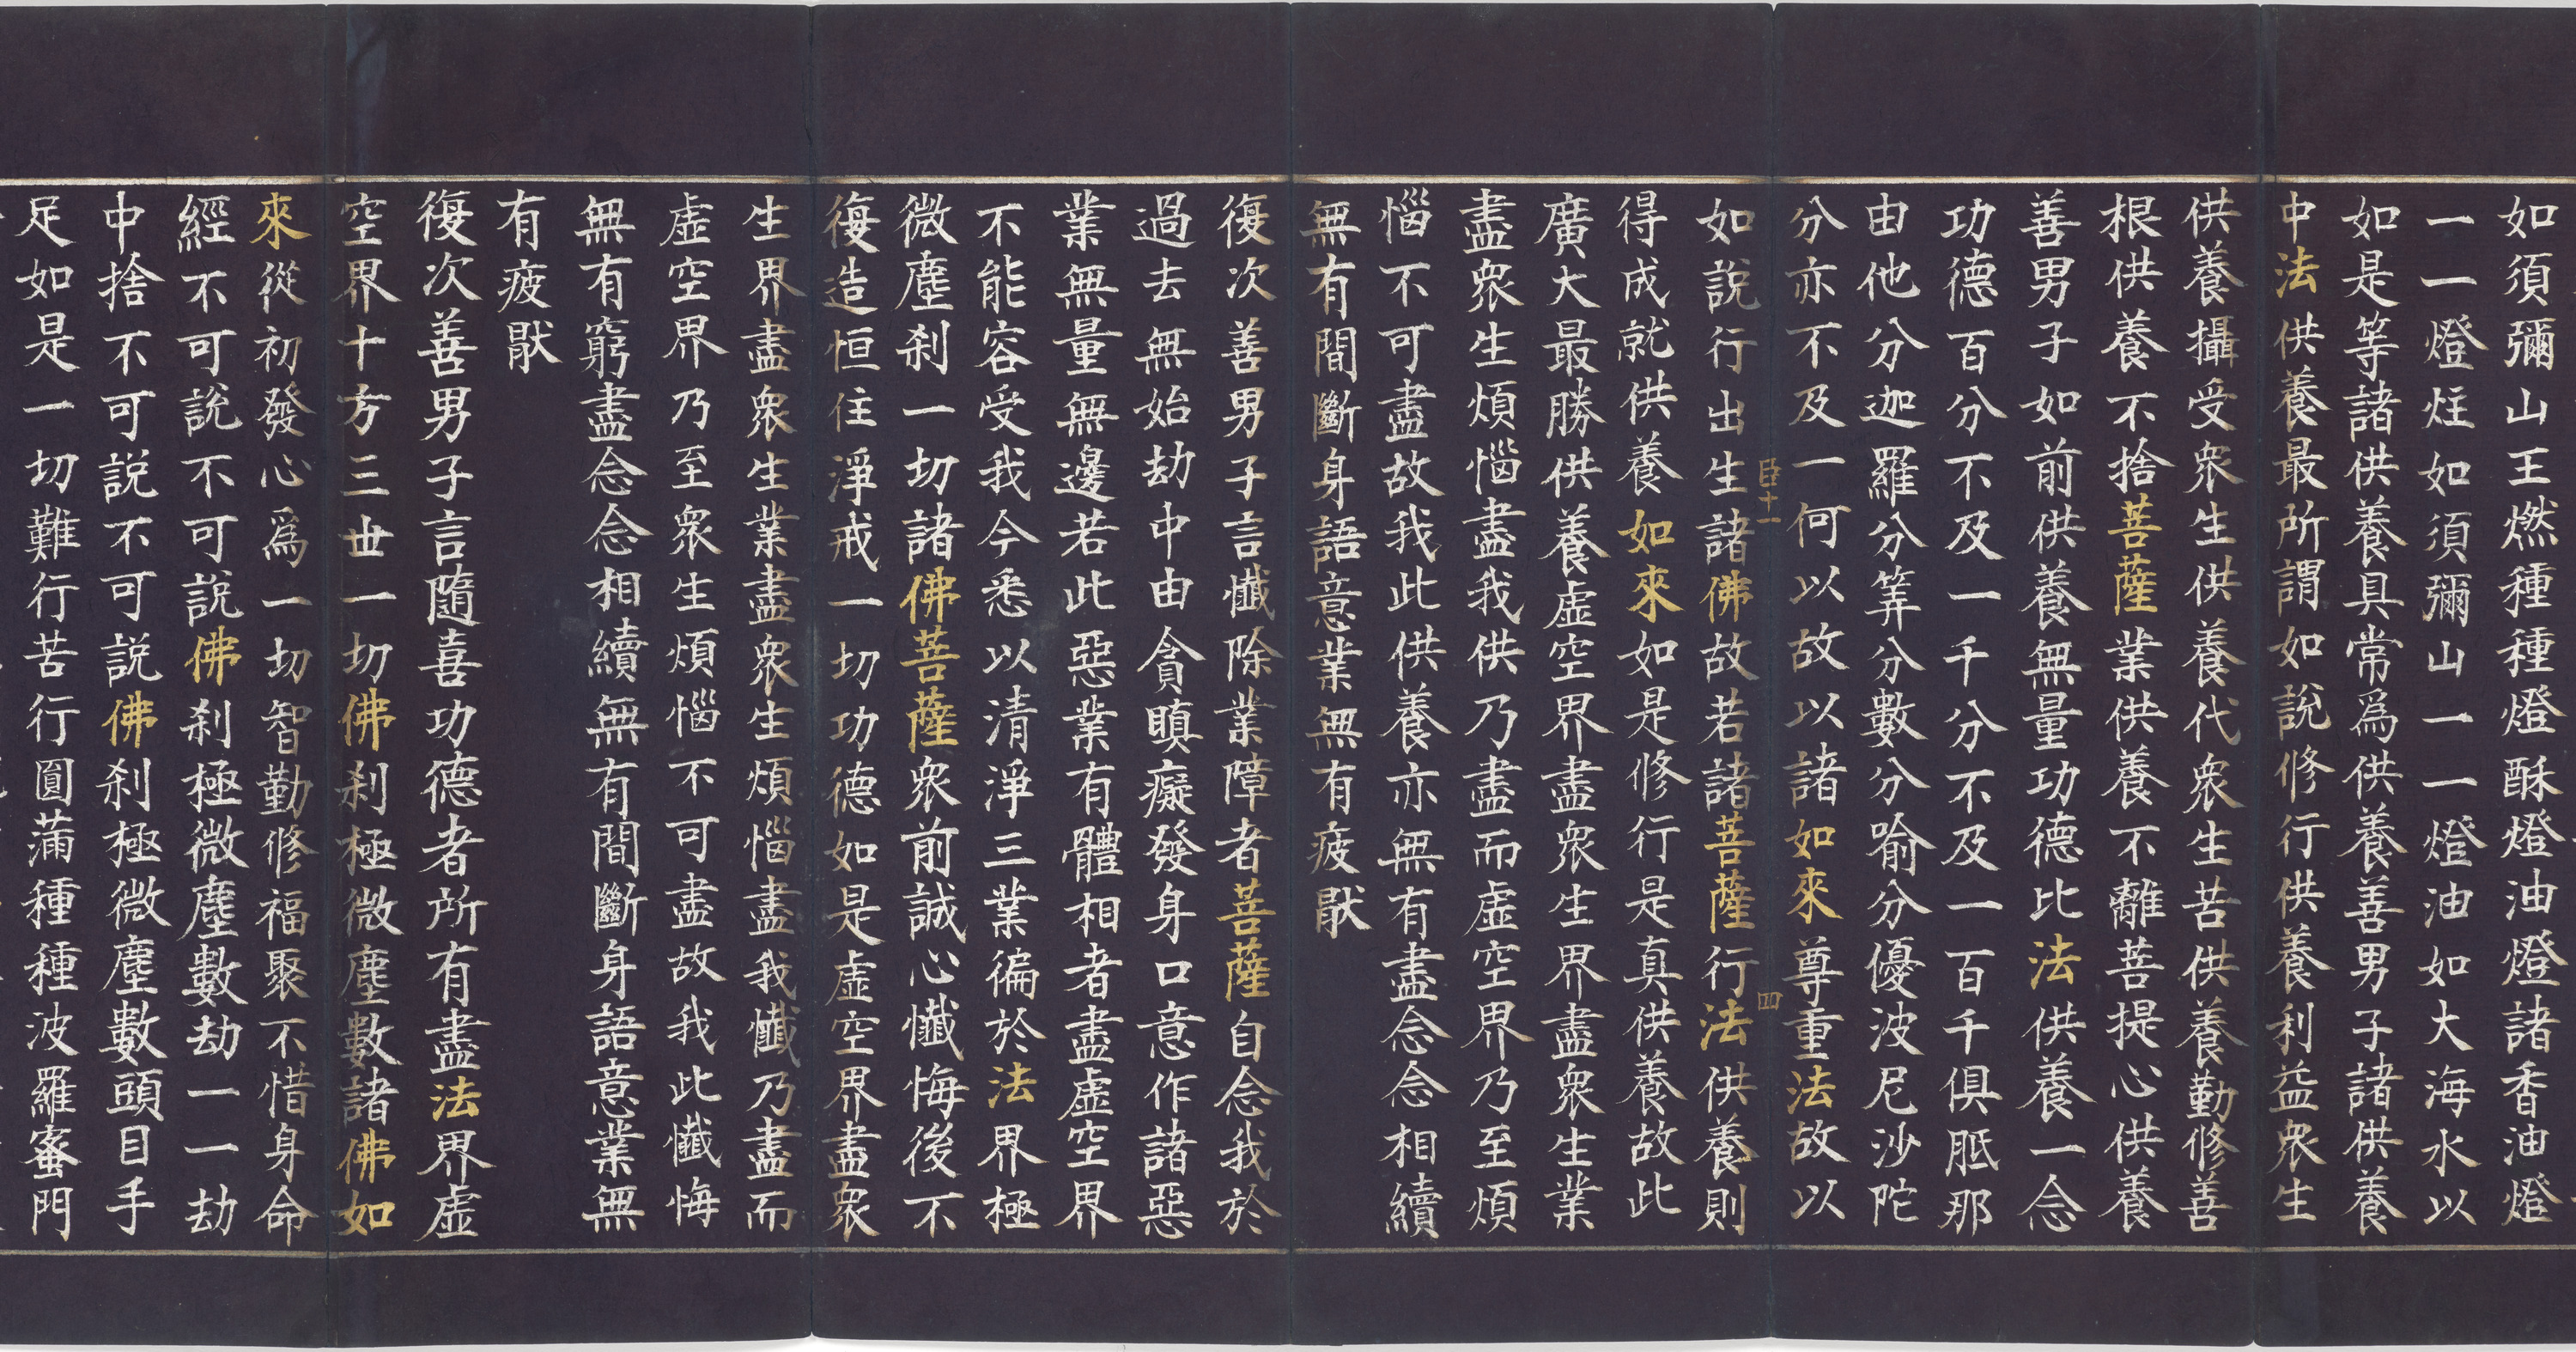 如須彌山王燃種種燈酥燈油燈諸香油燈
一一燈炷如須彌山一一燈油如大海水以
如是等諸供養具常爲供養善男子諸供養
中法供養最所謂如說修行供養利益衆生
供養攝受衆生供養代衆生苦供養勤修善
根供養不捨菩薩業供養不離菩提心供養
善男子如前供養無量功德比法供養一念
功德百分不及一千分不及一百千俱胝那
由他分迦羅分筭分數分喻分優波尼沙陀
分亦不及一何以故以諸如來尊重法故以
臣十一 四
如說行出生諸佛故若諸菩薩行法供養則
得成就供養如來如是修行是真供養故此
廣大最勝供養虛空界盡衆生界盡衆生業
盡衆生煩惱盡我供乃盡而虛空界乃至煩
惱不可盡故我此供養亦無有盡念念相續
無有間斷身語意業無有疲厭
復次善男子言懺除業障者菩薩自念我於
過去無始劫中由貪瞋癡發身口意作諸惡
業無量無邊若此惡業有體相者盡虛空界
不能容受我今悉以清淨三業徧於法界極
微塵刹一切諸佛菩薩衆前誠心懺悔後不
復造恒住淨戒一切功德如是虛空界盡衆
生界盡衆生業盡衆生煩惱盡我懺乃盡而
虛空界乃至衆生煩惱不可盡故我此懺悔
無有窮盡念念相續無有間斷身語意業無
有疲厭
復次善男子言隨喜功德者所有盡法界虛
空界十方三世一切佛刹極微塵數諸佛如
來從初發心爲一切智勤修福聚不惜身命
經不可說不可說佛刹極微塵數劫一一劫
中捨不可說不可說佛刹極微塵數頭目手
足如是一切難行苦行圓滿種種波羅蜜門